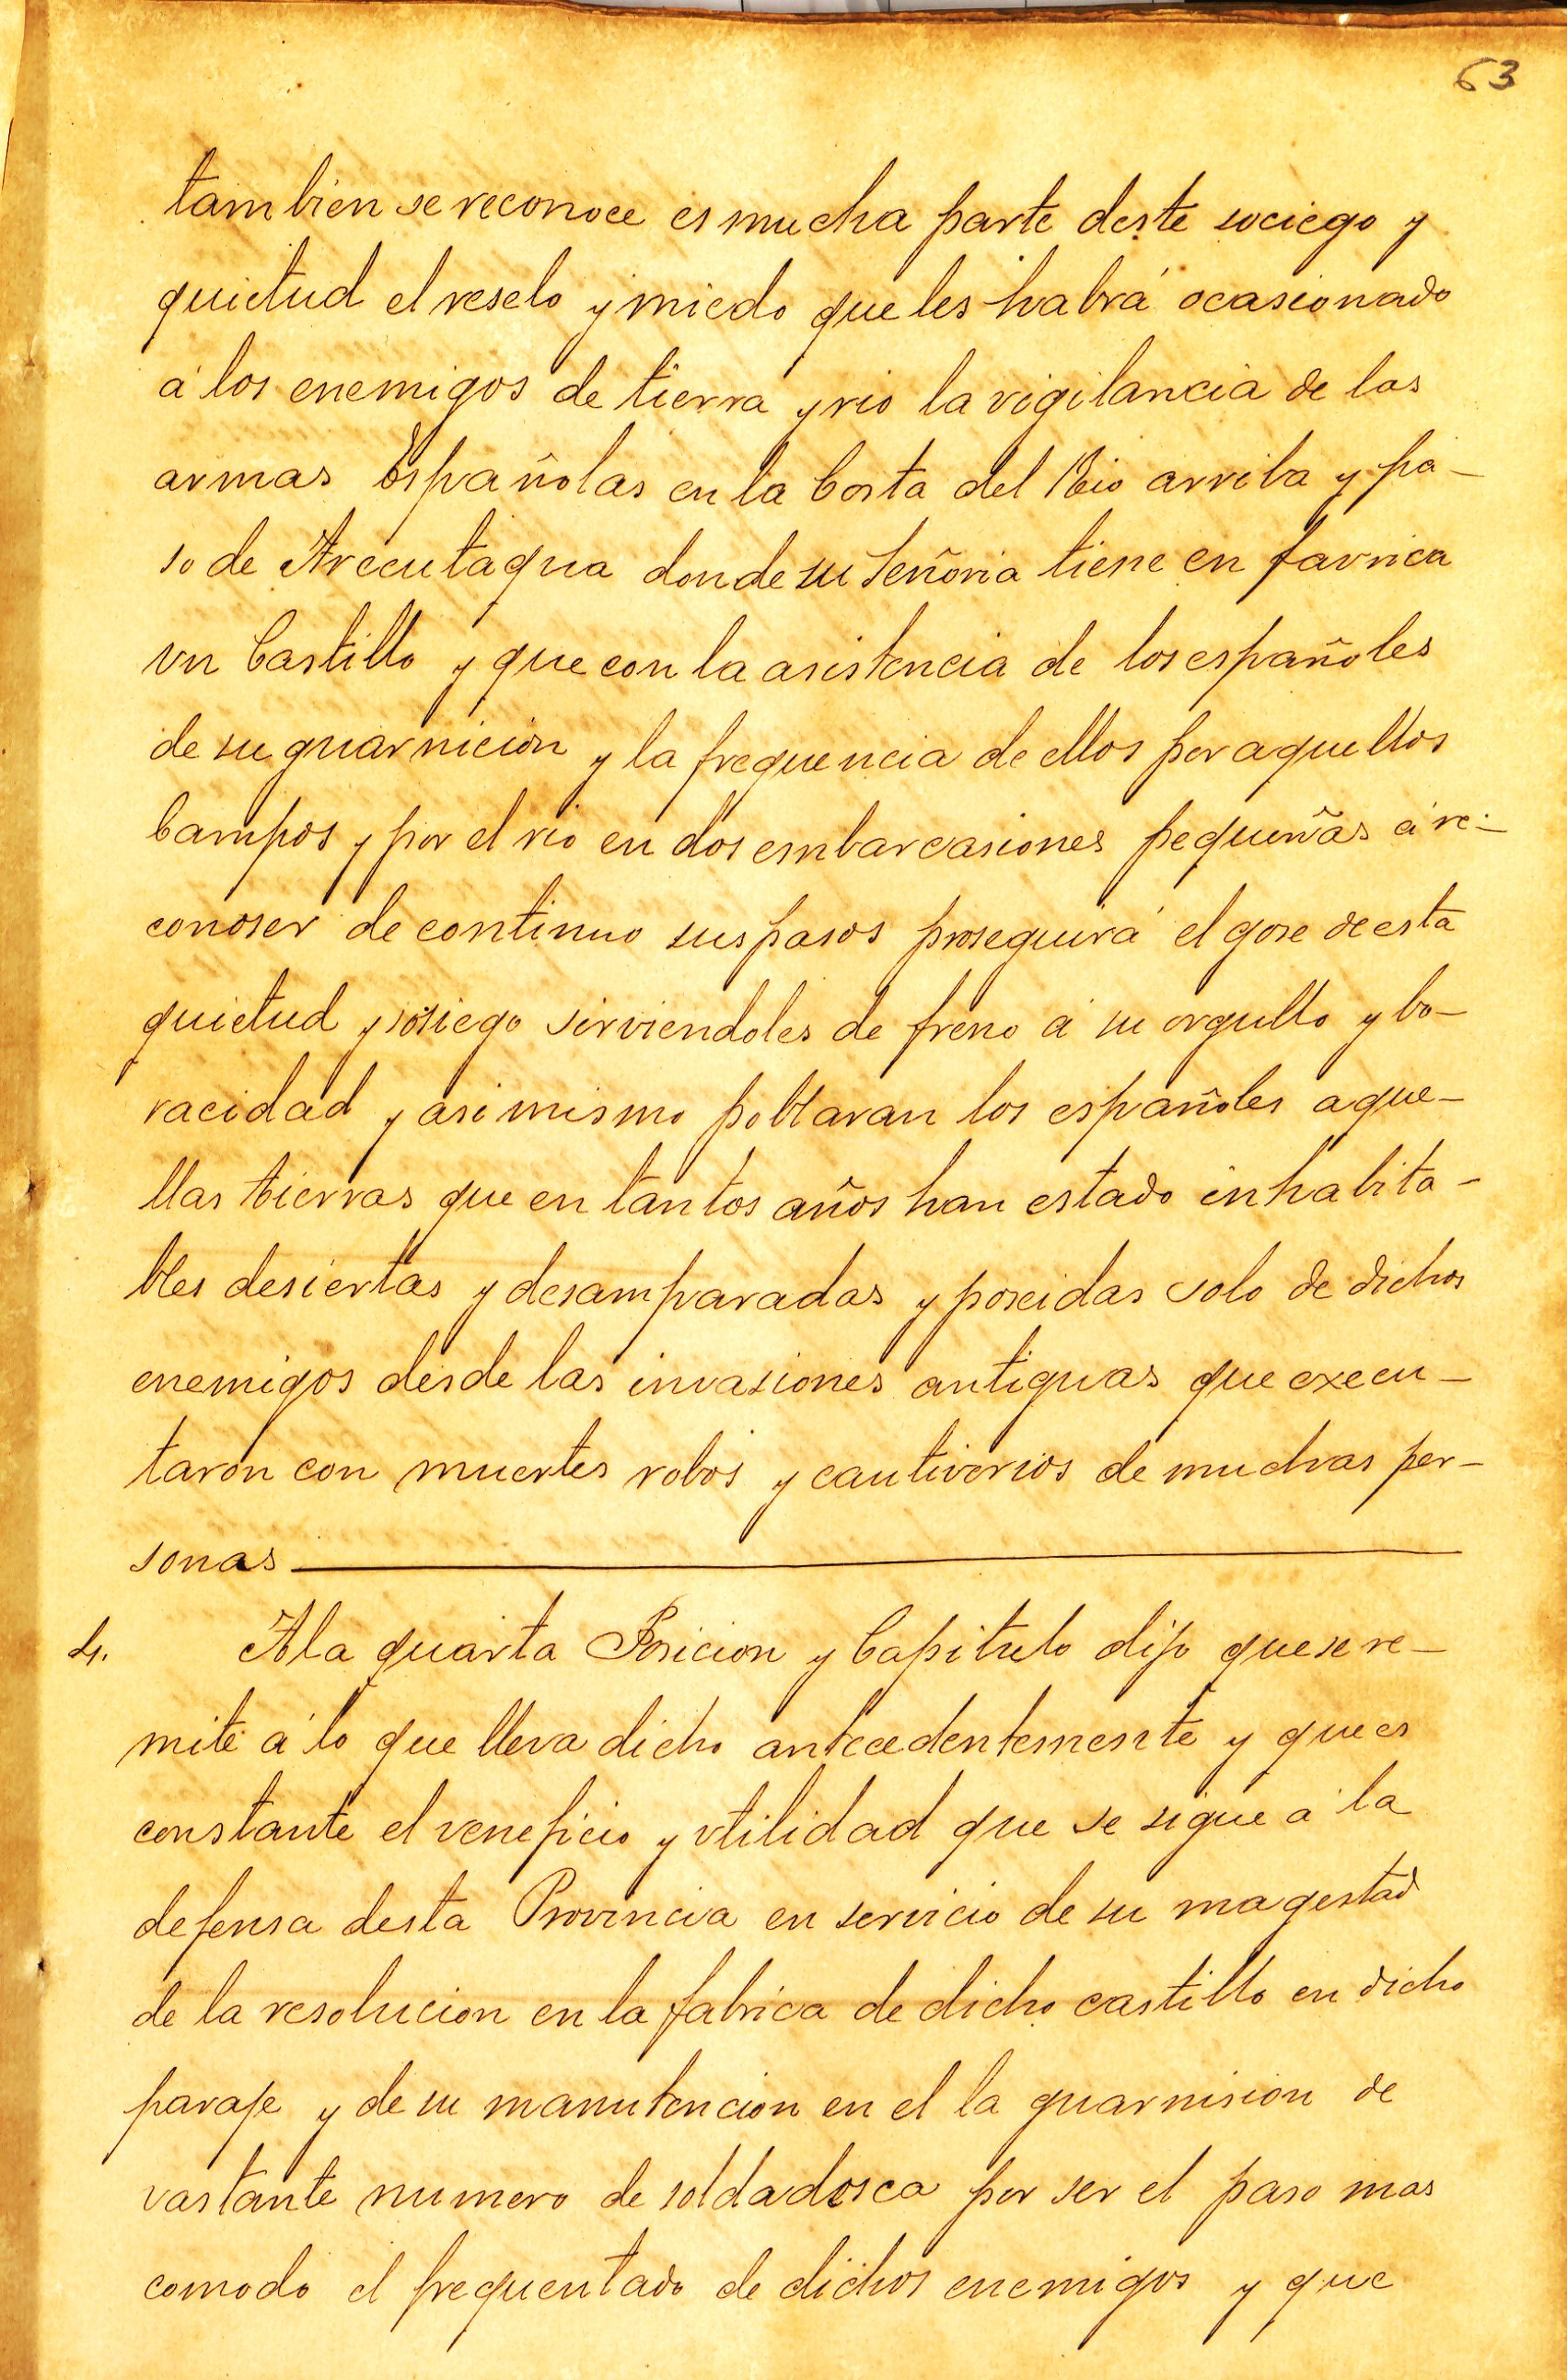 63
tambien se reconoce es mucha parte deste sociego y
quietud el reselo y miedo que les habrá ocasionado
á los enemigos de tierra y rio la vigilancia de las
armas Españolas en la Costa del Rio arriba y pa-
so de Arecutaqua donde su Señoria tiene en favrica
vn Castillo y que con la asistencia de los españoles
de su guarnicion y la frequencia de ellos por aquellos
Campos y por el rio en dos embarcasiones pequeñas á re-
conoser de continuo sus pasos proseguirá el gose de esta
quietud y sosiego sirviendoles de freno á su orgullo y bo-
racidad y asi mismo poblaran los españoles aque-
llas tierras que en tantos años han estado inhabita-
bles desiertas y desamparadas y poseidas solo de dichos
enemigos desde las invasiones antiguas que execu-
taron con muertes robos y cautiverios de muchas per-
sonas
4. A la quarta Posicion y Capitulo dijo que se re-
mite á lo que lleva dicho antecedentemente y que es
constante el veneficio y vtilidad que se sigue á la
defensa desta Provincia en servicio de su magestad
de la resolucion en la fabrica de dicho castillo en dicho
paraje y de su manutencion en el la guarnision de
vastante numero de soldadosca por ser el paso mas
comodo el frequentado de dichos enemigos y que